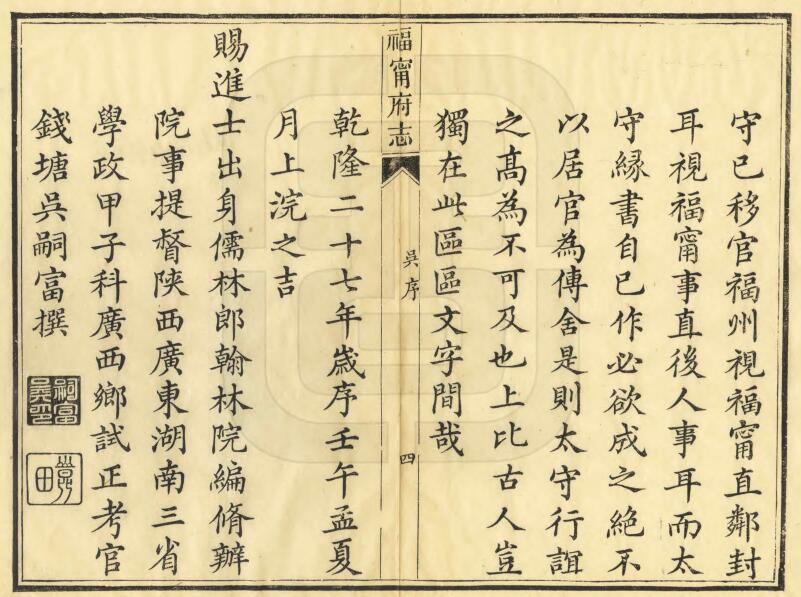 守已移官福州視福甯直鄰封
耳視福甯事直後人事耳而太
守緣書自已作必欲成之絶不
以居官為傳舍是則太守行誼
之髙為不可及也上比古人豈
獨在此區區文字間哉
福甯府志
吳序
四
乾隆二十七年歲序壬午孟夏
月上浣之吉
賜進士出身儒林郎翰林院編脩辦
院事提督陝西廣東湖南三省
學政甲子科廣西鄉試正考官
錢塘吳嗣富撰
嗣富
吳印